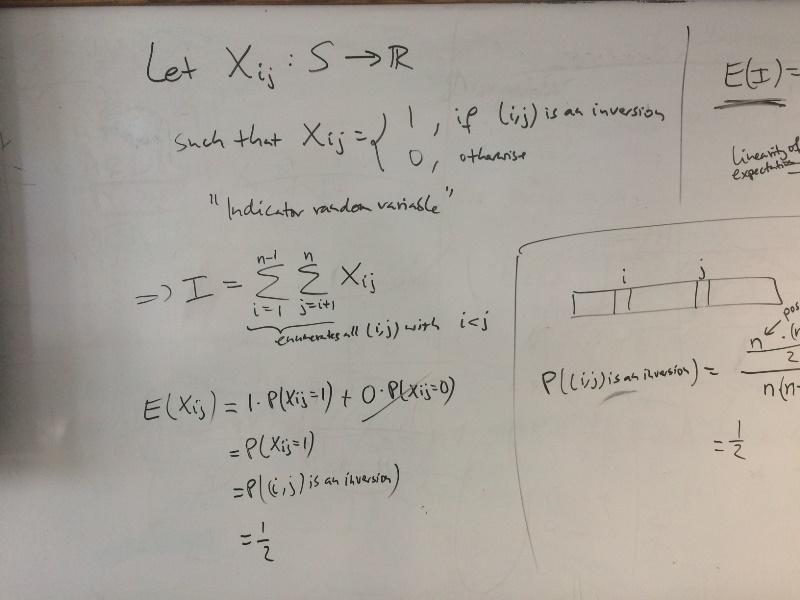 Let Xij : S → ℝ
such that Xij = { 1, if (i,j) is an inversion
0, otherwise
"Indicator random variable"
=> I = n-1 ∑ i=1 n ∑ j=i+1 Xij
enumerates all (i,j) with i<j
E(Xij) = 1·P(Xij=1) + 0·P(Xij=0)
= P(Xij=1)
= P((i,j) is an inversion)
= 1/2
E(I) =
linearity of
expectation
i j
pos
P((i,j) is an inversion) = n · (n
2
n(n-
= 1/2